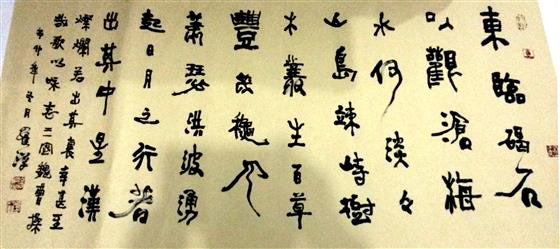 東臨碣石
以觀滄海
水何淡々
山島竦峙樹
木叢生百草
豐茂穐風
蕭瑟洪波湧
起日月之行若
出其中星漢
燦爛若出其裏幸甚至
哉歌以咏志三國魏曹操
年冬月羅